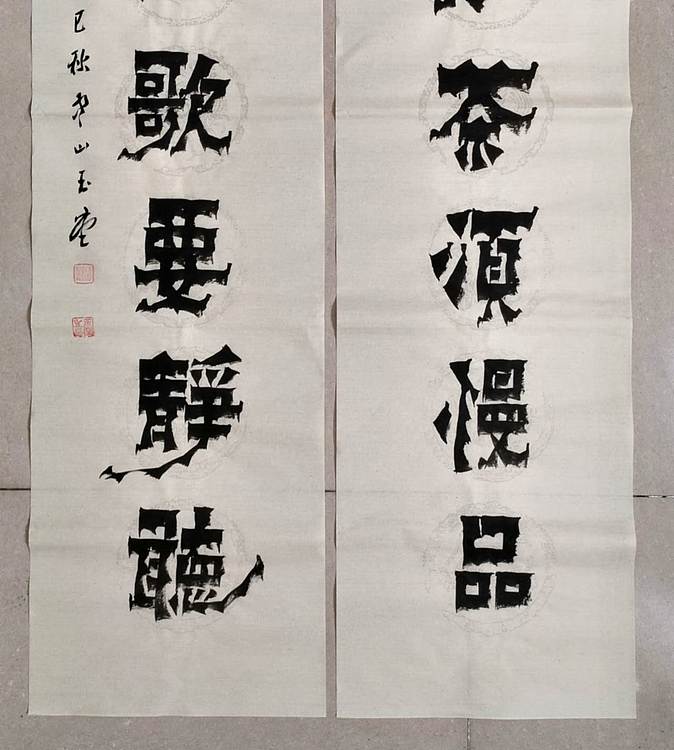 茶須慢品
歌要靜聽
巳秋 山玉堂